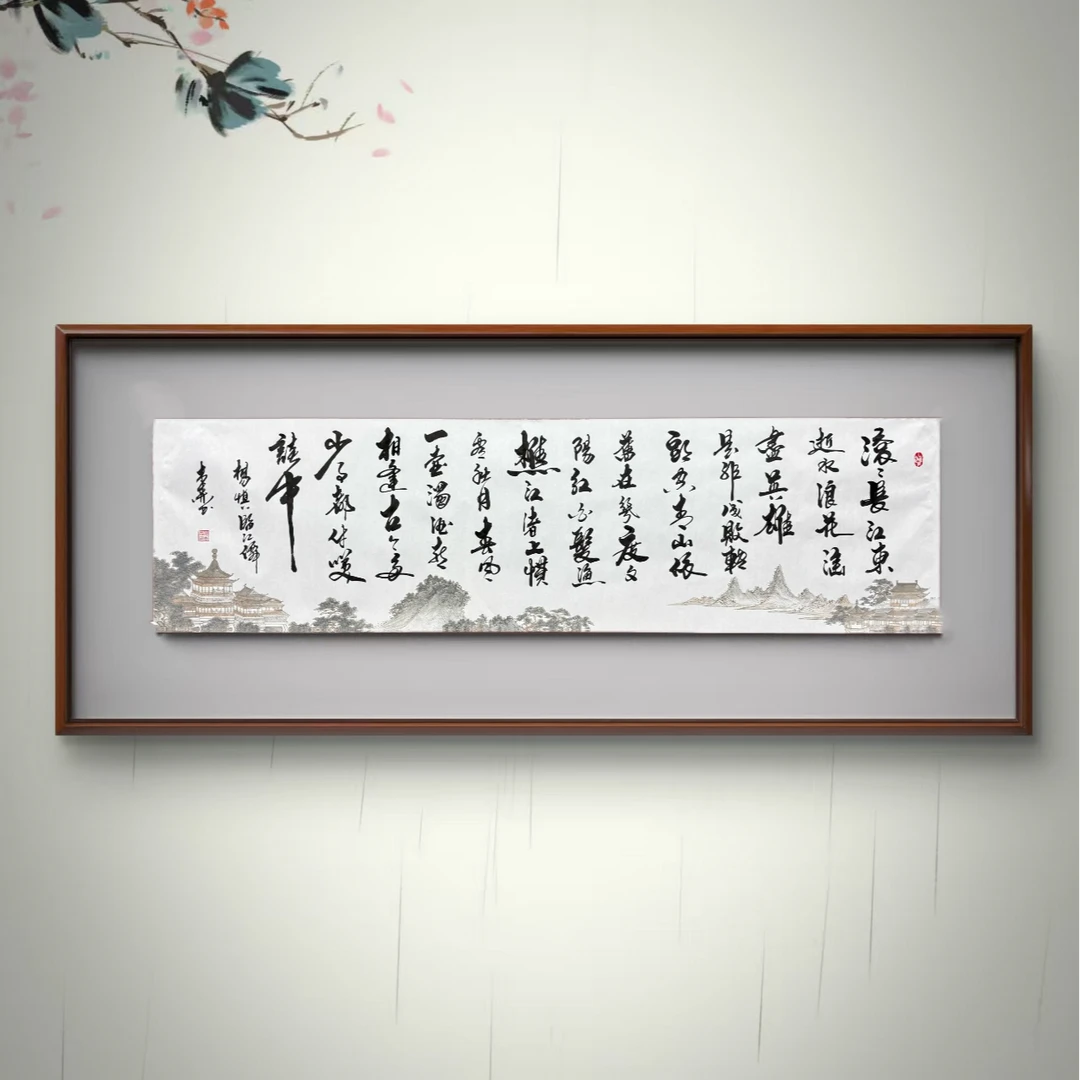 滚〻長江東
逝水浪花淘
盡英雄
是非成敗轉
頭空青山依
舊在幾度夕
陽紅白髮漁
樵江渚上慣
看秋月春風
一壺濁酒喜
相逢古今多
少事都付笑
談中
楊慎臨江僊